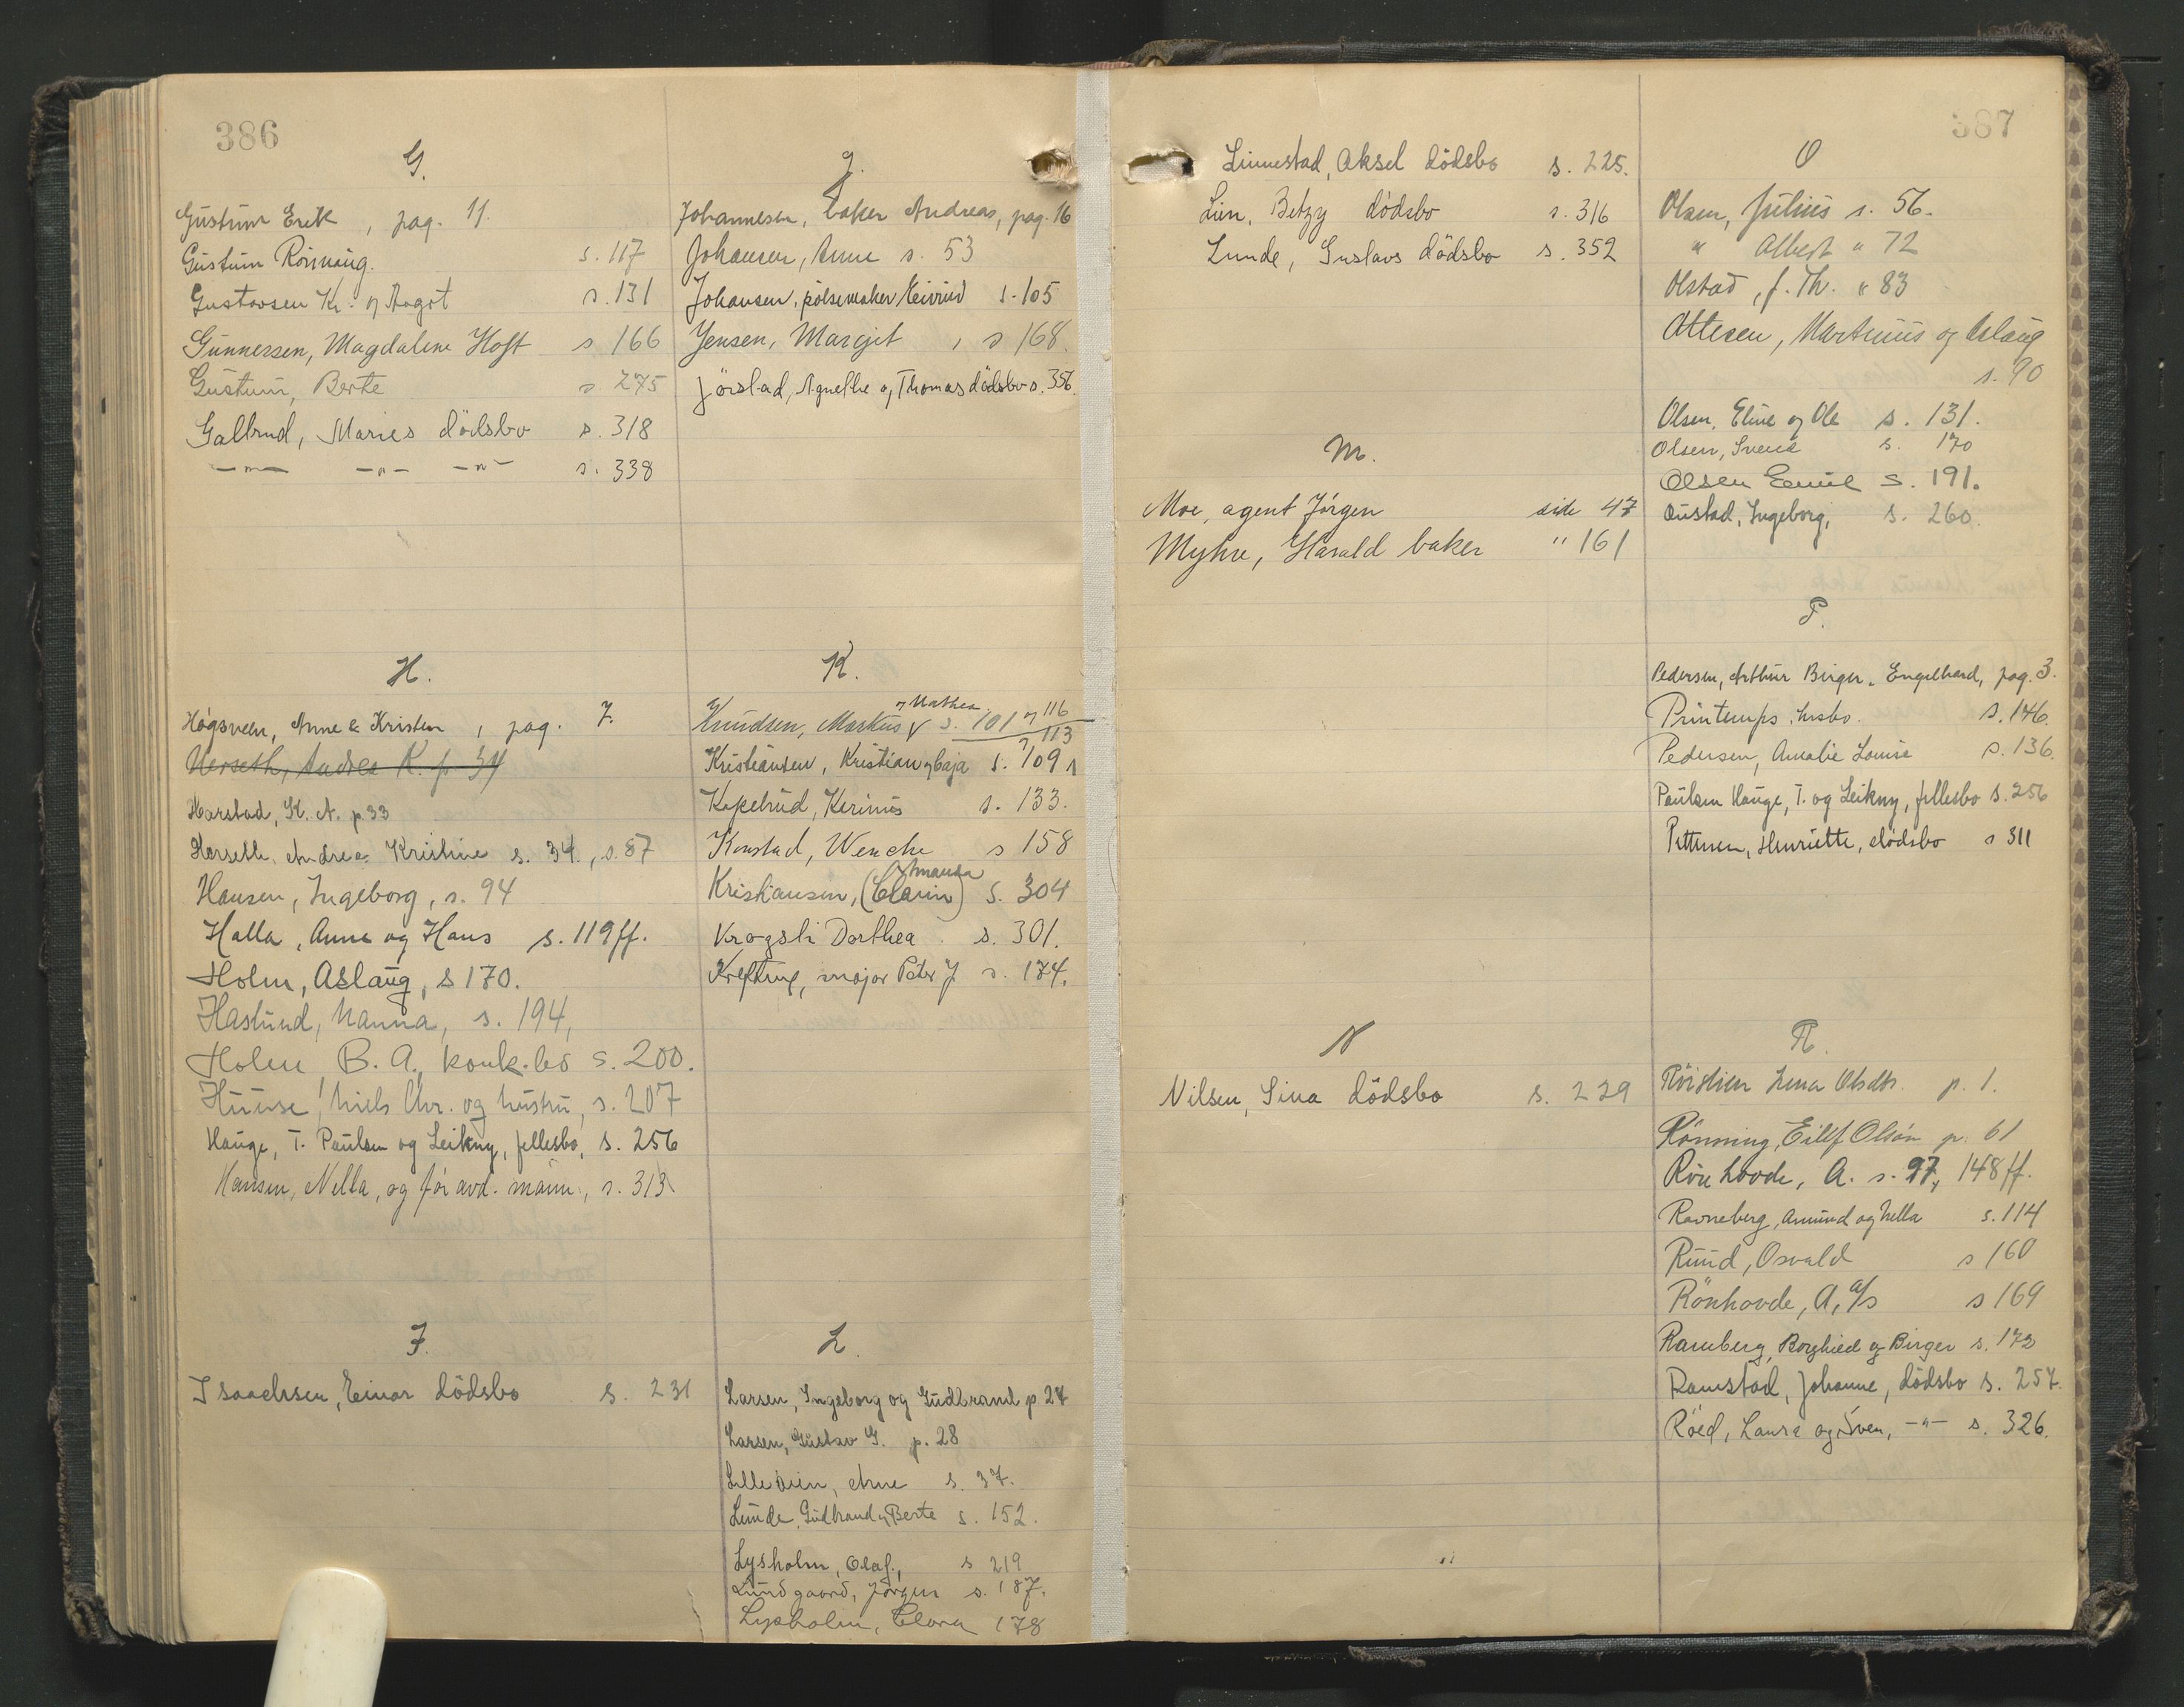 386
G.
Gustum Erik, pag. 11.
Gustum Rönnaug. s. 117
Gustavsen Kr. og Aagot s. 131
Gunnersen, Magdalene Hoft s 166
Gustum, Berte s. 275
Galbrud, Maries dödsbo s. 318
—"— —"— —"— s. 338
H.
Högsveen, Anne & Kristen, pag. 7.
Herseth, Andrea K. p 34
Harstad, K. A. p. 33
Herseth, Andrea Kristine s. 34., s. 87
Hansen, Ingeborg, s. 94
Halla, Anne og Hans s. 119 ff.
Holm, Aslaug, s 170.
Haslund, Nanna, s. 194,
Holm, B. A., konk.bo s. 200.
Huuse, Niels Chr. og hustru, s. 207
Hauge, T. Paulsen og Leikny, fellesbo, s. 256
Hansen, Nella, og før avd. mann, s. 313
I.
Isaachsen, Einar dödsbo s. 231
J.
Johannesen, baker Andreas, pag. 16
Johansen, Anne s. 53
Johansen, pölsemaker Eivind s. 105
Jensen, Margit, s 168.
Jörstad, Agnethe og Thomas dödsbo s. 356.
K.
Knudsen, Markus og Mathea s. 101 og 116 og 113
Kristiansen, Kristian og Caja s. 109
Kopelrud, Kerinus s. 133.
Konstad, Wenche s 158
Kristiansen, (Clarin) Amanda s. 304
Krogsli Dorthea s. 301.
Krefting, major Peter J s. 174.
L.
Larsen, Ingeborg og Gudbrand p 27
Larsen, Gustav G. p. 28
Lilleöien, Arne s. 37.
Lunde, Gudbrand og Berte s. 152.
Lysholm, Olaf., s 219
Lundgaard, Jörgen s. 187.
Lysholm, Clara 178
387
Linnestad, Aksel dödsbo s. 225.
Lien, Betzy dödsbo s. 316
Lunde, Gustavs dödsbo s. 352
M.
Moe, agent Jörgen side 47
Myhre, Harald baker " 161
N
Nilsen, Sina dödsbo s. 229
O
Olsen, Julius s. 56.
" Albert " 72
Olstad, J. Th. " 83
Ottesen, Martinius og Aslaug
s. 90
Olsen, Eline og Ole s. 131.
Olsen, Svend s. 170
Olsen Emil s. 191.
Oustad, Ingeborg, s. 260.
P.
Pedersen, Arthur Birger Engelhard, pag. 3.
Printemps hrsbo. s. 146.
Pedersen, Amalie Louise s. 136.
Paulsen Hauge, T. og Leikny, fellesbo s. 256
Pettersen, Henriette, dödsbo s 311
R.
Röistien Lena Olsdtr. p. 1.
Rönning, Eilif Olsön p. 61
Rönhovde, A. s. 97, 148 ff.
Ravneberg, Amund og Nella s. 114
Ruud, Osvald s 160
Rönhovde, A, a/s s 169
Ramberg, Borghild og Birger s. 172
Ramstad, Johanne, dödsbo s. 257.
Röed, Laura og Sven, —"— s. 326.